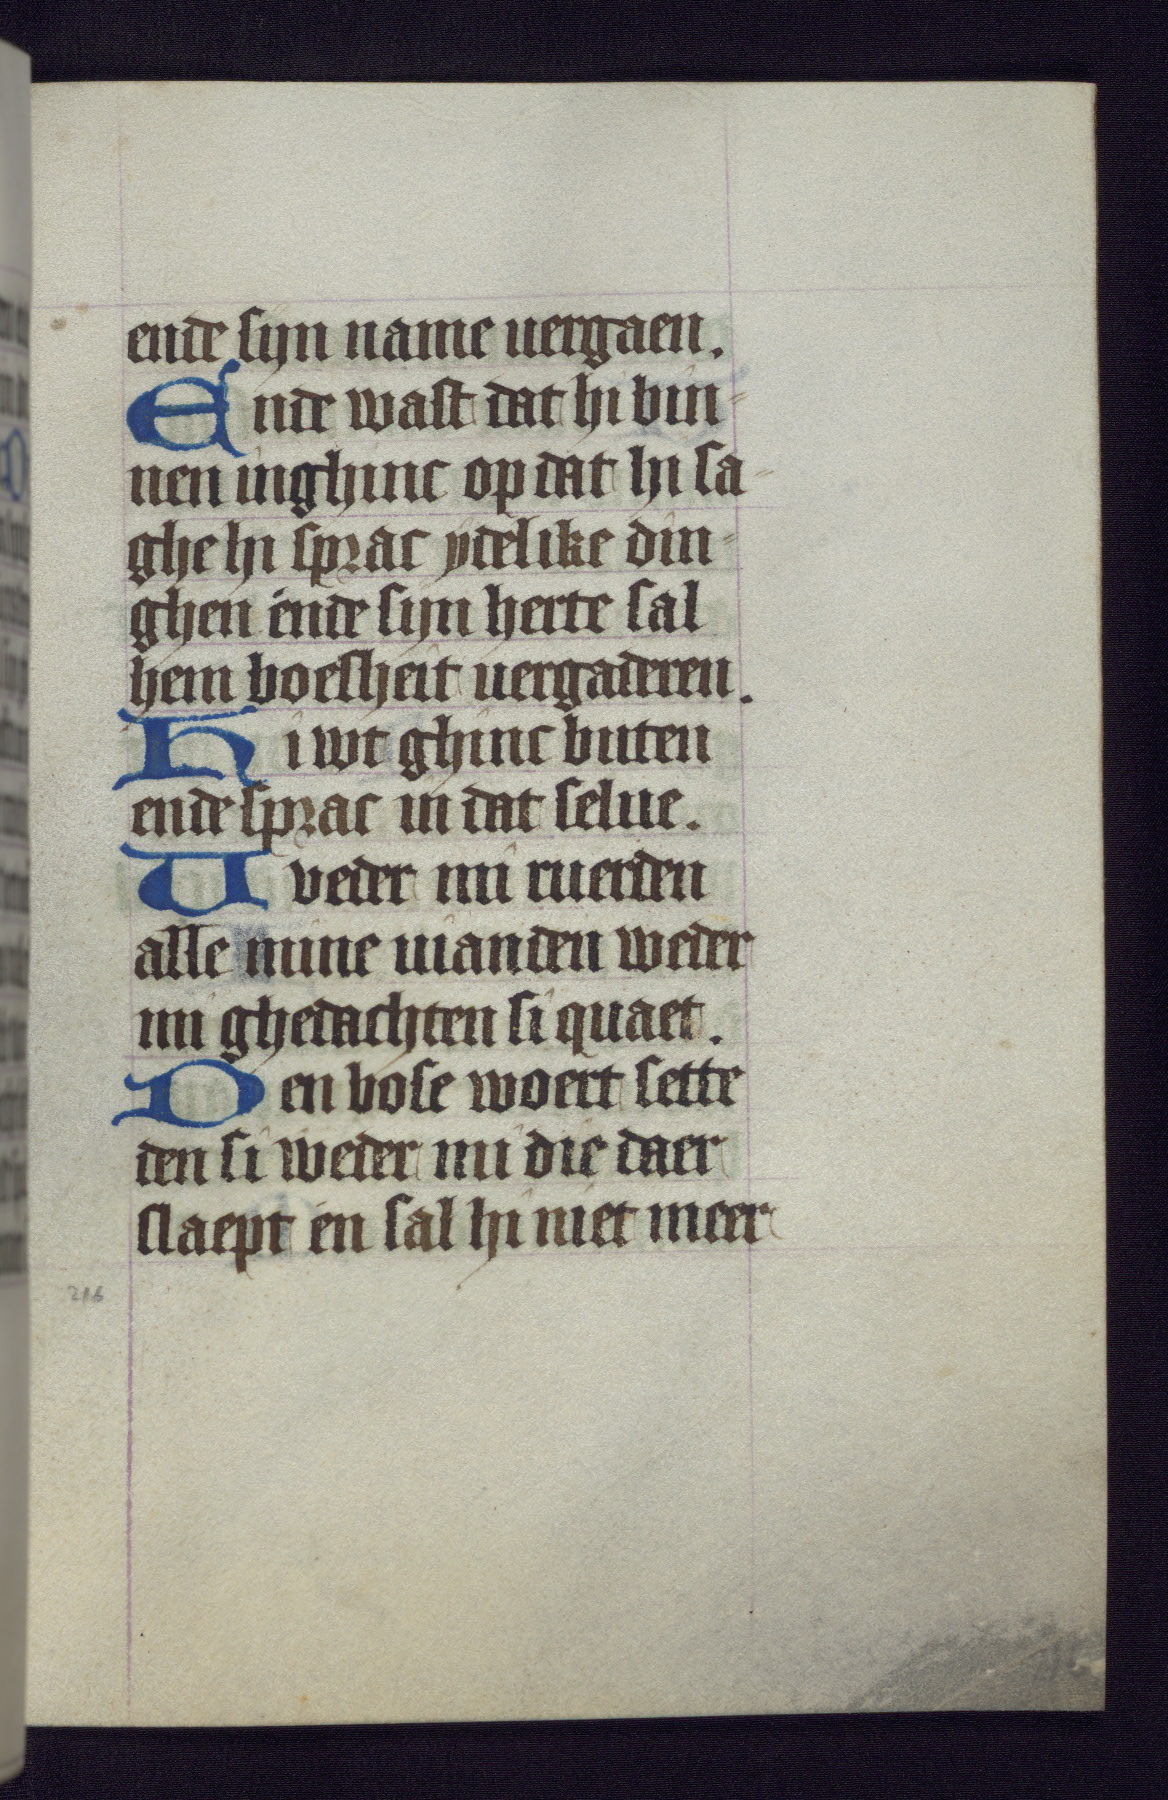 ende sijn name uergaen.
Ende wast dat hi bin-
nen inghinc op dat hi sa-
ghe hi sprac ydelike din-
ghen ende sijn herte sal
hem boesheit uergaderen.
Hi wt ghinc buten
ende sprac in dat selue.
Uveder mi ruerden
alle mine uianden weder
mi ghedachten si quaet.
Den bose woert sette
den si weder mi die daer
slaept en sal hi niet meer
216